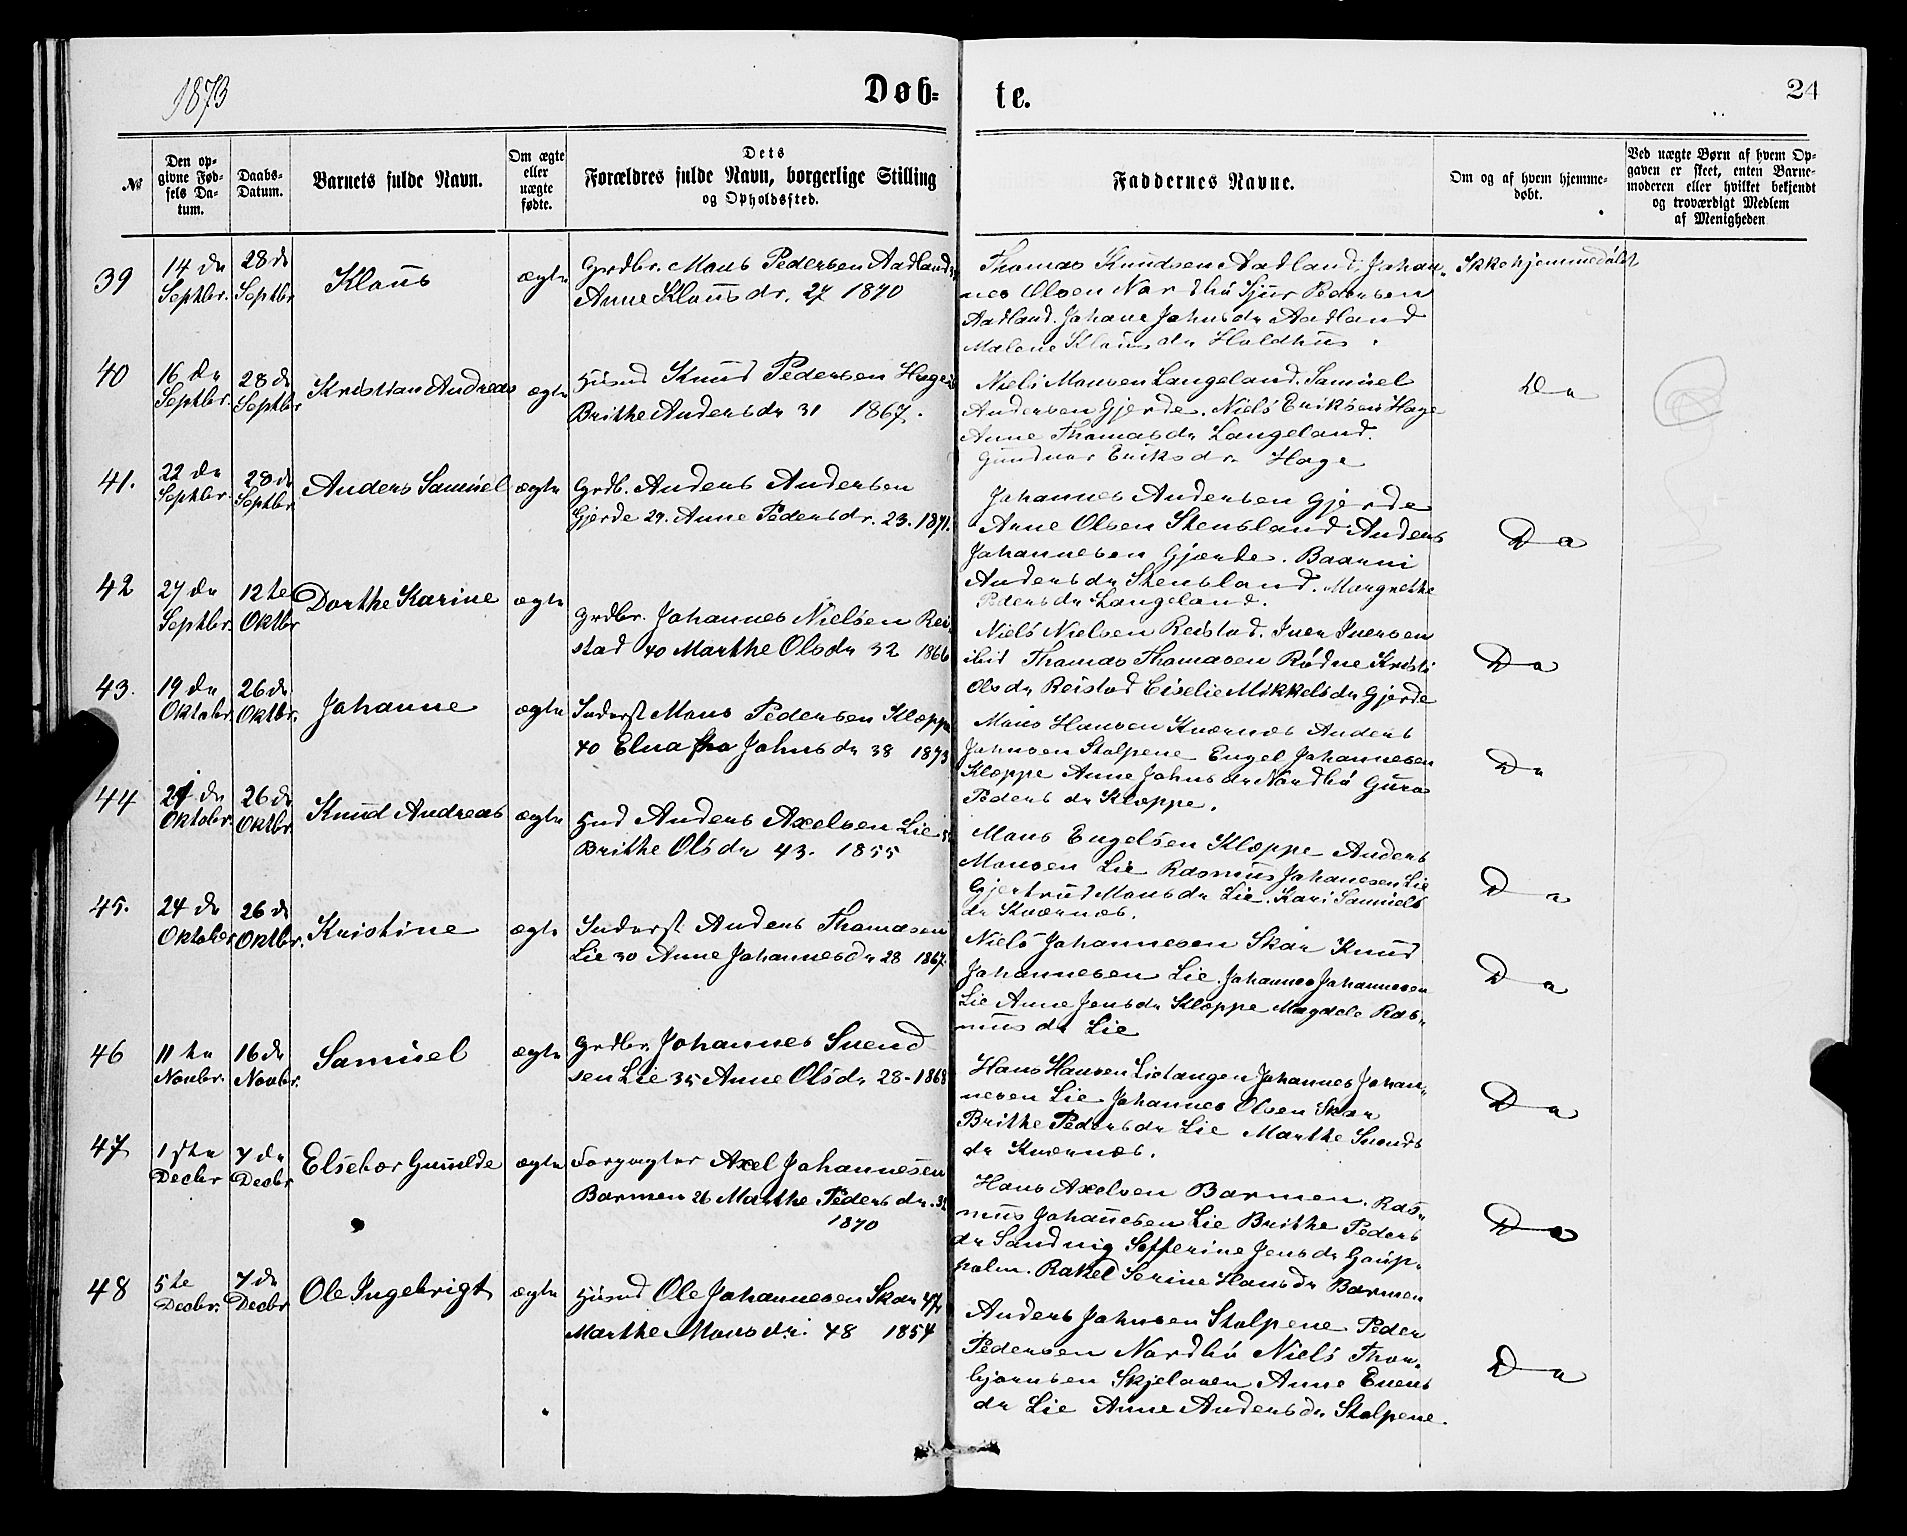 1873
Døb-
te.
24
№
Den op-
givne Fød-
sels Da-
tum.
Daabs-
Datum.
Barnets fulde Navn.
Om ægte
eller
uægte
fødte.
Dets
Forældres fulde Navn, borgerlige Stilling
og Opholdssted.
Faddernes Navne.
Om og af hvem hjemme-
døbt.
Ved uægte Børn af hvem Op-
gaven er skeet, enten Barne-
moderen eller hvilket bekjendt
og troværdigt Medlem
af Menigheden
39
14 de
Septbr.
28 de
Septbr
Klaus
ægte
Grdbr. Mons Pedersen Aadland
Anne Klausdr. 27 1870
Thomas Knudsen Aadland, Johan-
nes Olsen Nordhü Sjur Pedersen
Aadland. Johane Johnsdr Aadland
Malene Klausdr Holdhus.
Ikke hjemmedøbt
40
16 de
Septbr.
28 de
Septbr
Kristian Andreas
ægte
Husmd Knud Pedersen Hage
Brithe Andersdr 31 1867.
Niels Monsen Langeland. Samuel
Andersen Gjerde. Niels Eriksen Hage
Anne Thomasdr Langeland.
Gundvor Eriksdr. Hage
Do
41.
22 de
Septbr.
28 de
Septbr
Anders Samuel
ægte
Grdb. Anders Andersen
Gjerde 29. Anne Pedersdr. 23. 1871.
Johannes Andersen Gjerde
Arne Olsen Stensland Anders
Johannesen Gjærde. Baarni
Andersdr Stensland. Margrethe
Pedersdr Langeland.
Do
42
27 de
Septbr.
12te
Oktbr
Dorthe Karine
ægte
Grdbr. Johannes Nielsen Rei-
stad 40 Marthe Olsdr 32 1866
Niels Nielsen Reistad. Iver Iversen
ibid Thomas Thomasen Rødne Kristi
Olsdr Reistad Ciselie Mikkelsdr Gjerde
Do
43.
19 de
Oktobr.
26 de
Oktbr.
Johanne
ægte
Inderst Mons Pedersen Kloppe
40 Elna Johnsdr 38 1873
Mons Hansen Kvernes Anders
Johnsen Stolpene Engel Johannesen
Kloppe Anne Johnsdr Nordhü Guro
Pedersdr Kloppe.
Do
44
21 de
Oktobr.
26 de
Oktbr.
Knud Andreas
ægte
Hmd Anders Axelsen Lie
Brithe Olsdr 43. 1855
Mons Engelsen Kloppe Anders
Monsen Lie Rasmus Johanesen Lie
Gjertrud Monsdr Lie. Kari Samuels
dr Kvernes.
Do
45.
24 de
Oktober
26 de
Oktbr.
Kristine
ægte
Inderst Anders Thomasen
Lie 30 Anne Johannesdr 28 1867.
Niels Johannesen Skår Knud
Johannesen Lie. Johannes Johannesen
Lie Anne Jensdr Kloppe Magdele Ras-
musdr Lie
Do
46
11te
Novbr.
16 de
Novbr.
Samuel
ægte
Grdbr. Johannes Svend
sen Lie 35 Anne Olsdr 28 - 1868
Hans Hansen Lietangen Johannes Johan-
nesen Lie Johannes Olsen Skår
Brithe Pedersdr Lie Marthe Svends
dr Kvernes.
Do
47
1ste
Decbr
7 de
Decbr
Elsebor Gunilde
ægte
Forpagter Axel Johannesen
Barmen 26 Marthe Pedersdr. 32
1870
Hans Axelsen Barmen. Ras-
mus Johanesen Lie Brithe Peders
dr Sandvig Sefferine Jensdr Goup-
holm. Rakel Serine Hansdr Barmen
Do
48
5te
Decbr.
7 de
Decbr
Ole Ingebrigt
ægte
Husmd Ole Johannesen Skår 47
Marthe Monsdr. 48 1854
Anders Johnsen Stolpene Peder
Pedersen Nordhü Niels Thor-
bjørnsen Skjelaaen Anne Evens
dr Lie Anne Andersdr Stolpene.
Do